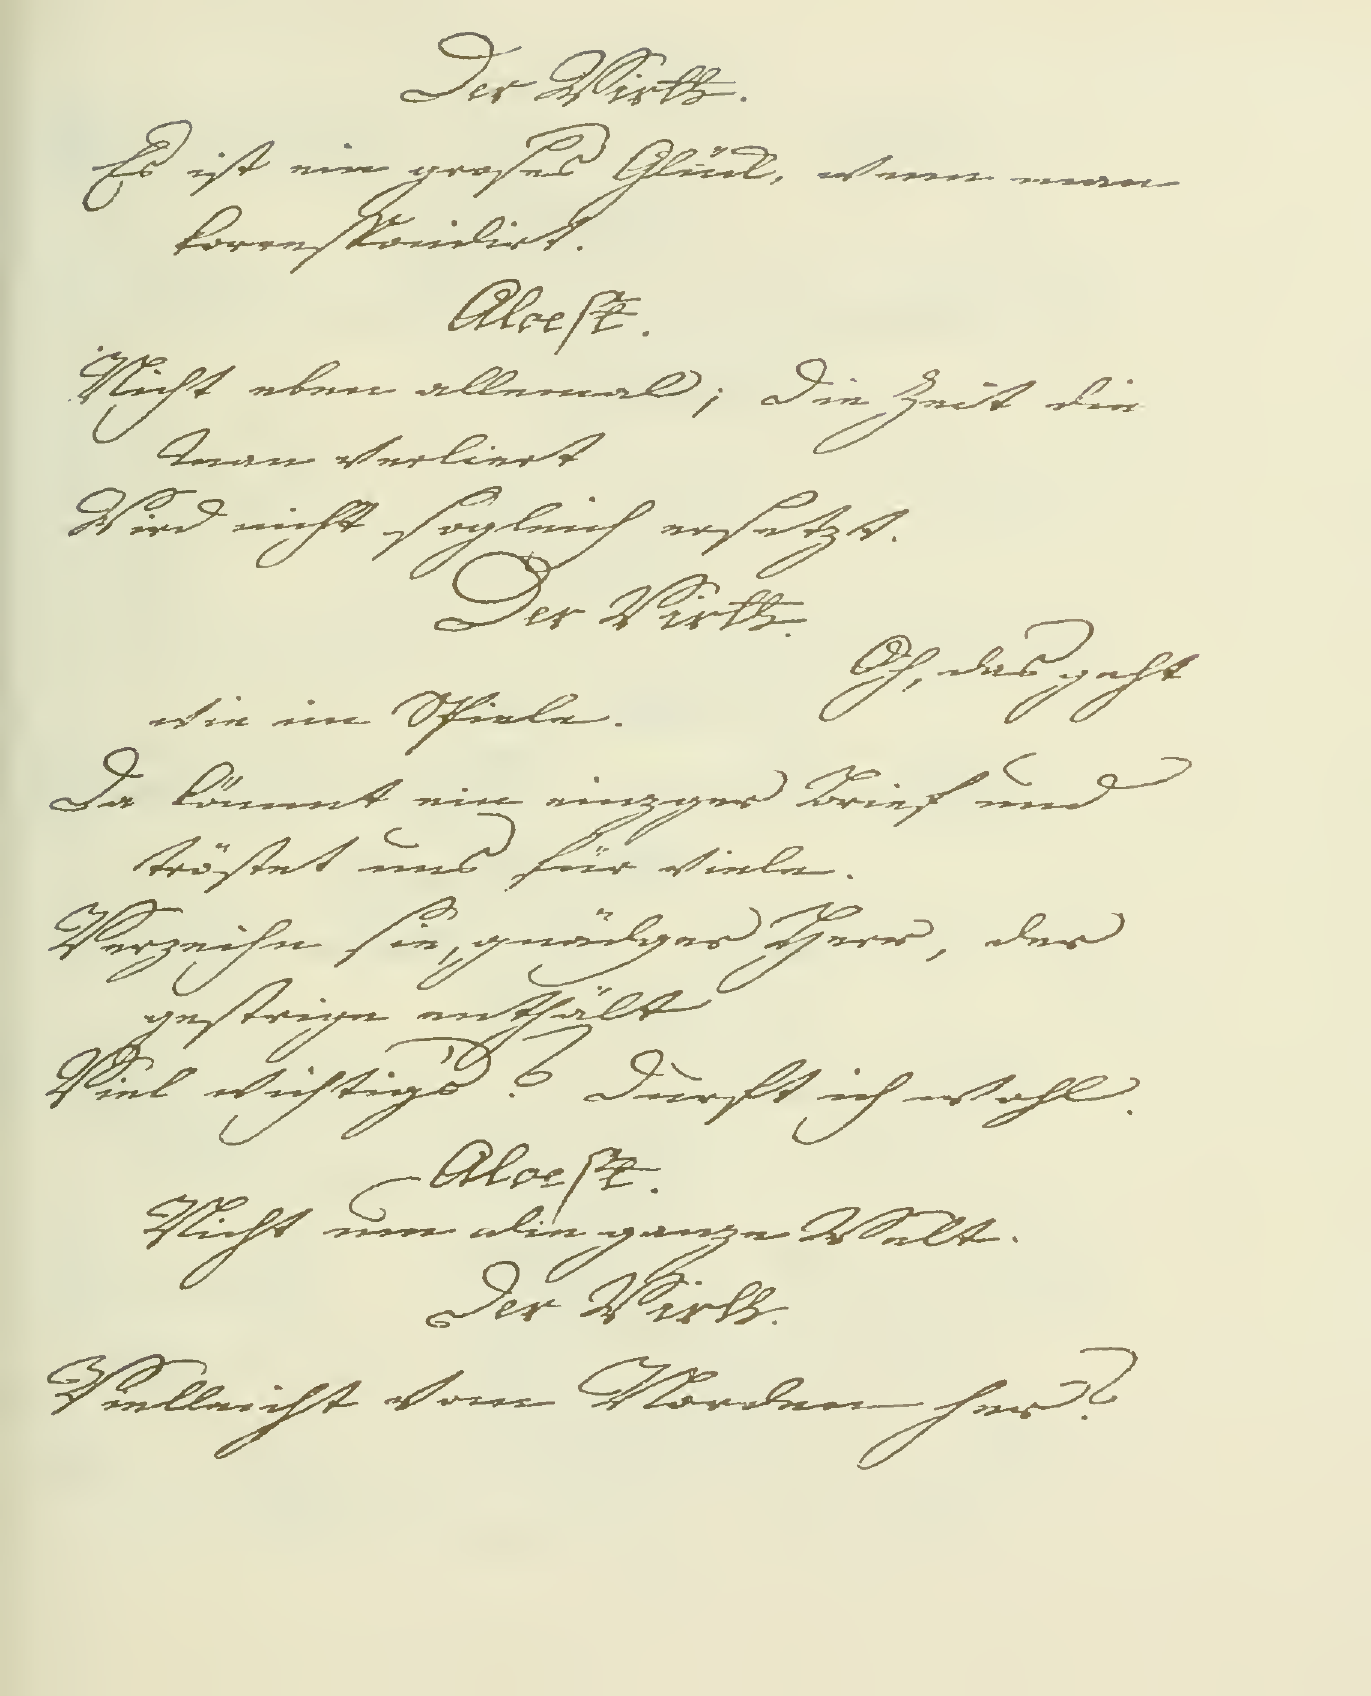 Der Wirth.
Es ist ein groses Glück, wenn man
korrespondirt.
Alcest.
Nicht eben allemal; Die Zeit die
man verliert
Wird nicht sogleich ersetzt.
Der Wirth.
Oh, das geht
wie im Spiele.
Da kömmt ein einzger Brief und
tröstet uns für viele.
Verzeihn sie, gnädger Herr, der
gestrige enthält
Viel wichtigs? Durft ich wohl.
Alcest.
Nicht um die ganze Welt.
Der Wirth.
Vielleicht vom Norden her?